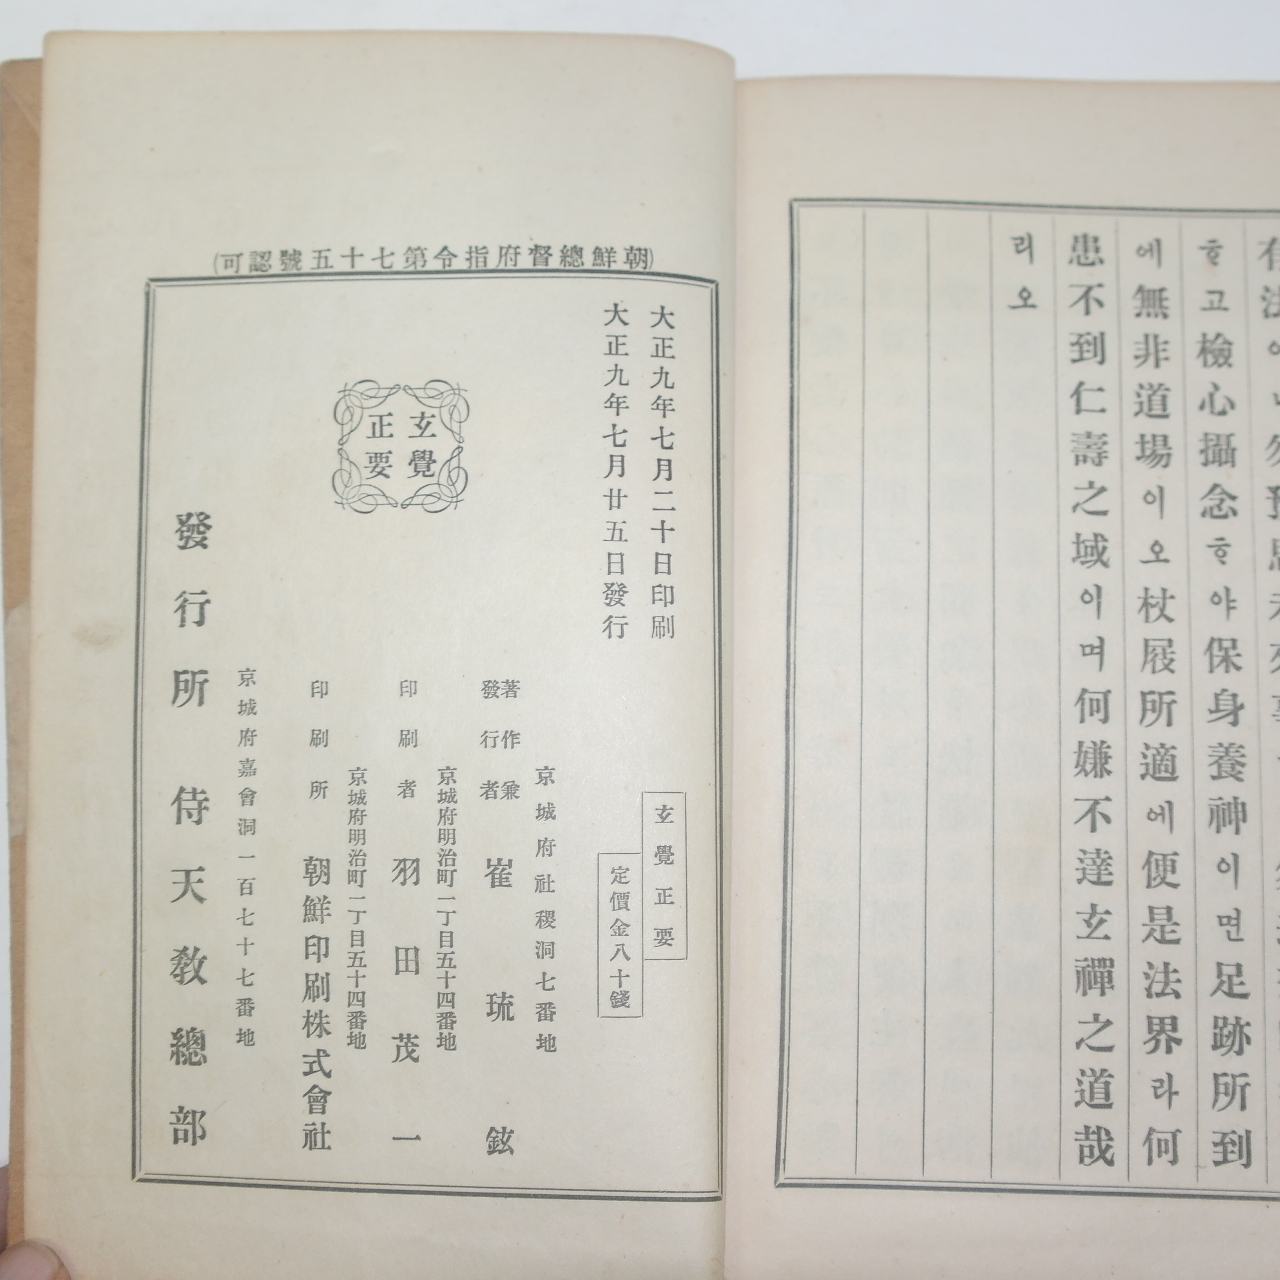 ᄒᆞ고檢心攝念ᄒᆞ야保身養神이면足跡所到
에無非道場이오杖屐所適에便是法界라何
患不到仁壽之域이며何嫌不達玄禪之道哉
리오
(朝鮮總督府指令第七十五號認可)
大正九年七月二十日印刷
大正九年七月廿五日發行
玄覺正要
定價金八十錢
玄覺
正要
京城府社稷洞七番地
著作兼
發行者 崔琉鉉
京城府明治町一丁目五十四番地
印刷者 羽田茂一
京城府明治町一丁目五十四番地
印刷所 朝鮮印刷株式會社
京城府嘉會洞一百七十七番地
發行所 侍天敎總部